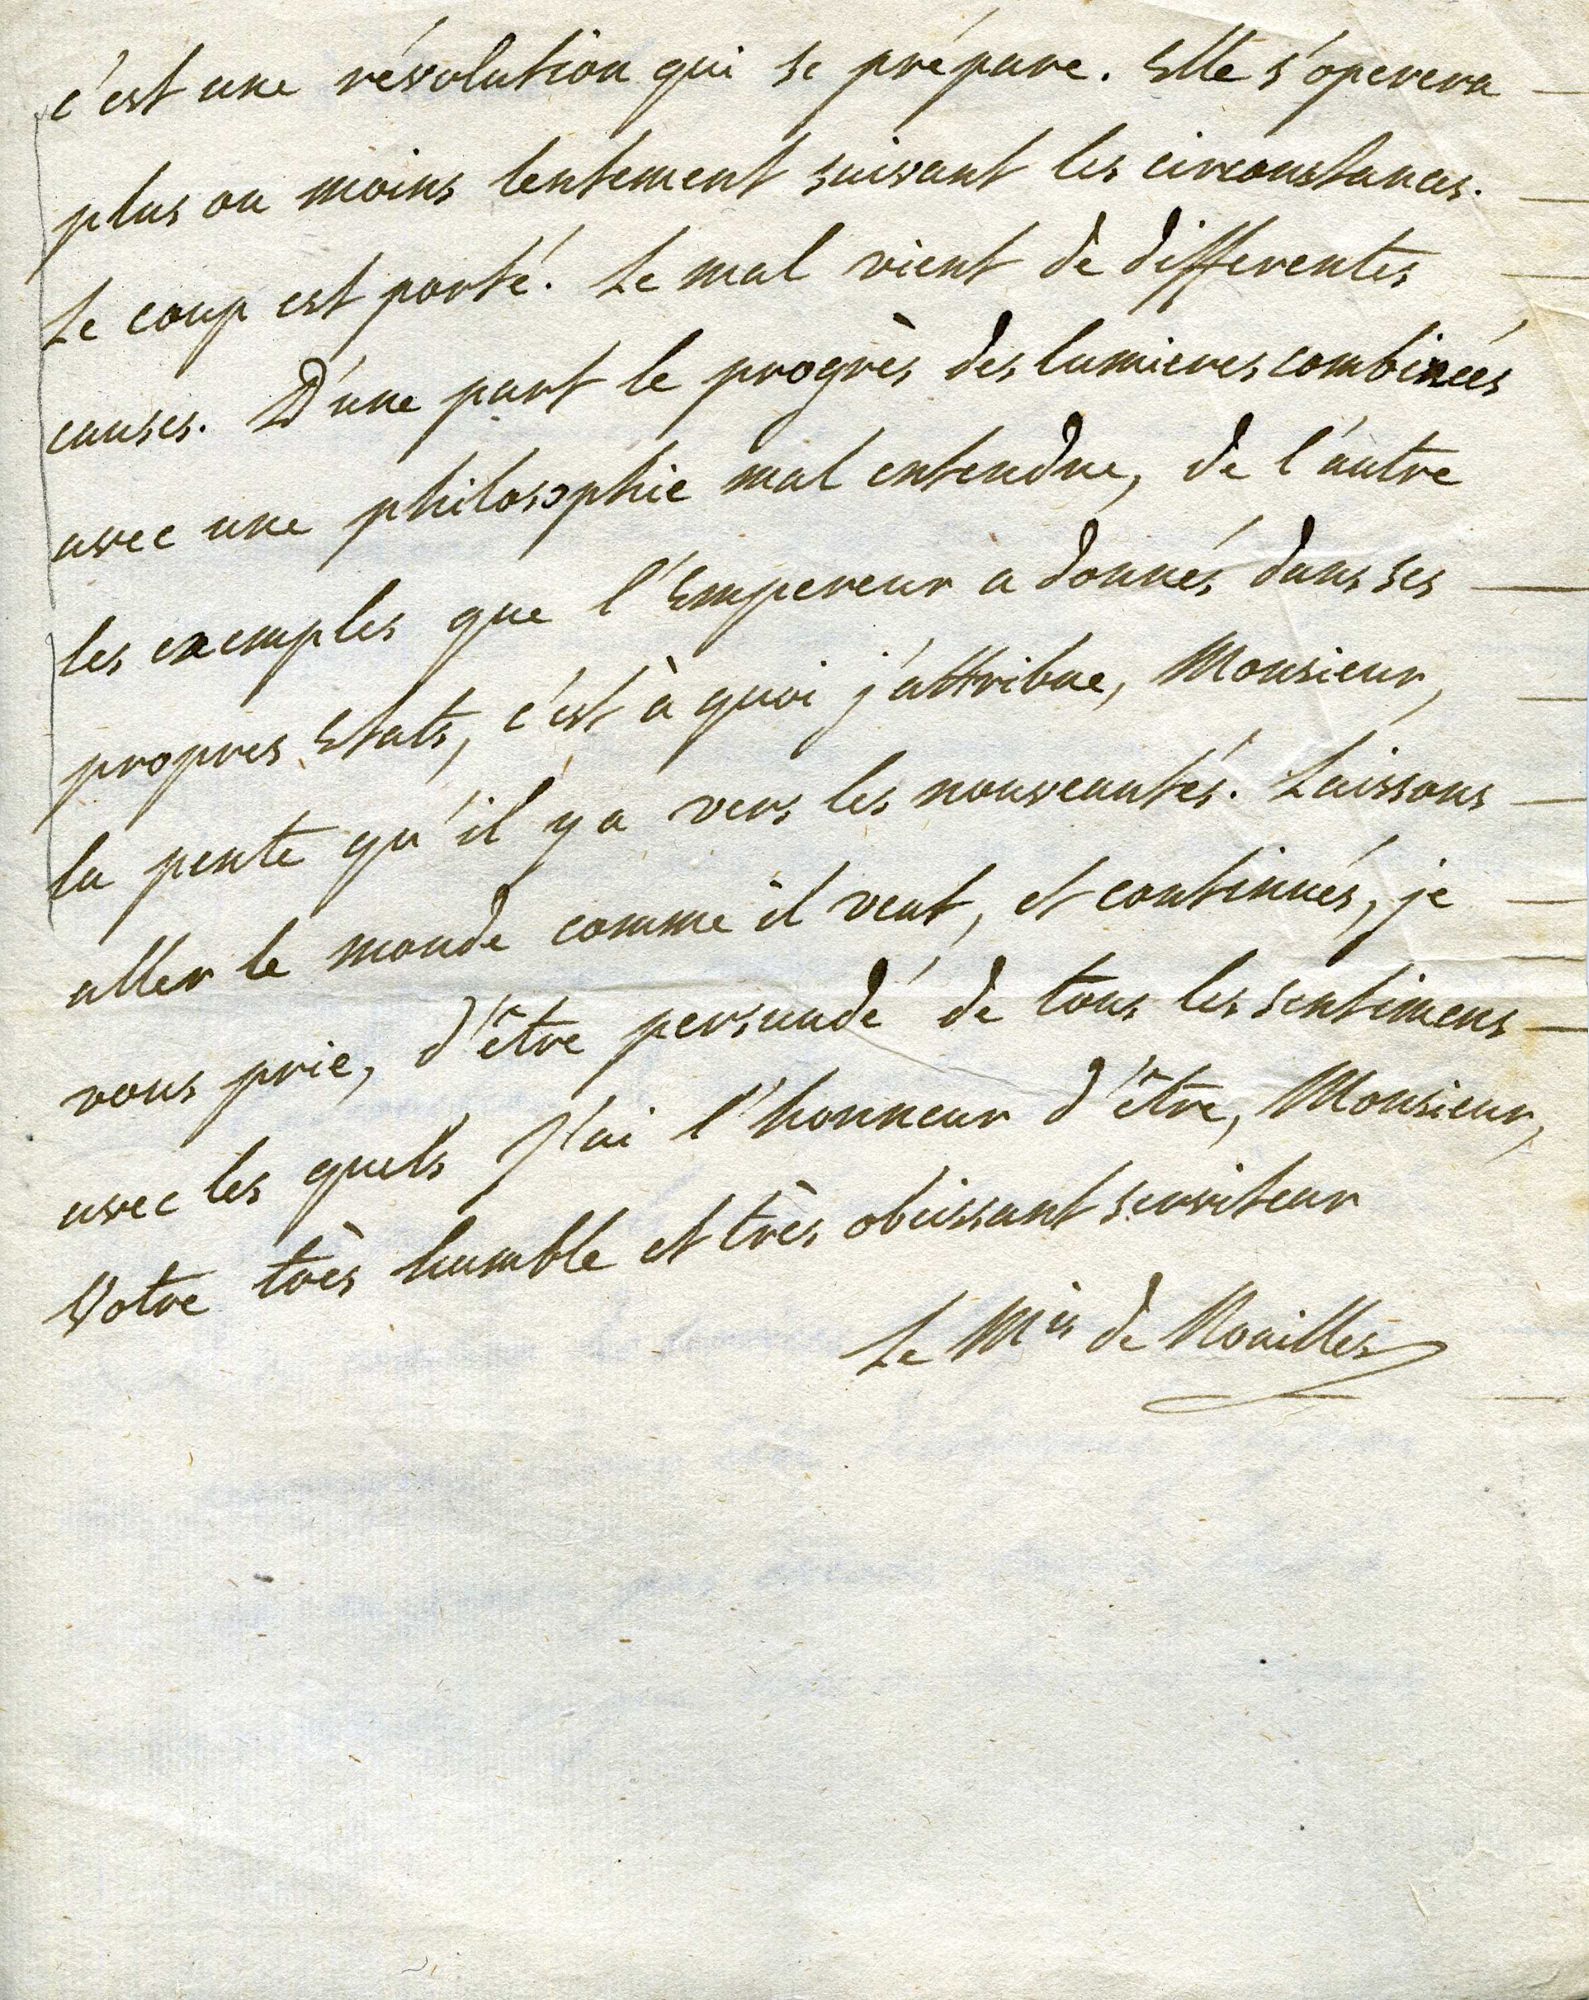 c'est une révolution qui se prépare. Elle s'operera
plus ou moins lentement suivant les circonstances.
Le coup est porté. Le mal vient de differentes
causes. D'une part le progrès des lumieres combinées
avec une philosophie mal entendue, de l'autre
les exemples que l'Empereur a donnés dans ses
propres Etats, c'est à quoi j'attribue, Monsieur,
la pente qu'il y a vers les nouveautés. Laissons
aller le monde comme il veut, et continués, je
vous prie, d'être persuadé de tous les sentimens
avec les quels j'ai l'honneur d'être, Monsieur,
Votre très humble et très obeissant serviteur
Le Mis de Noailles